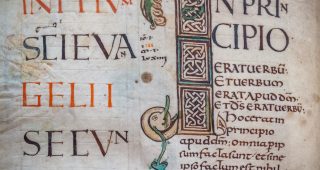 INITIUM
SCĪ EVAN
GELII
SECUN
IN PRI
CIPIO
ERATUERBŪ:
ETUERBUM
ERATAPUDDM̄
ETDS̄ERATUERBŪ:
Hocerat in
principio
apuddm̄. omnia p ip
sum facta sunt: et sine
ipso factum est nihil